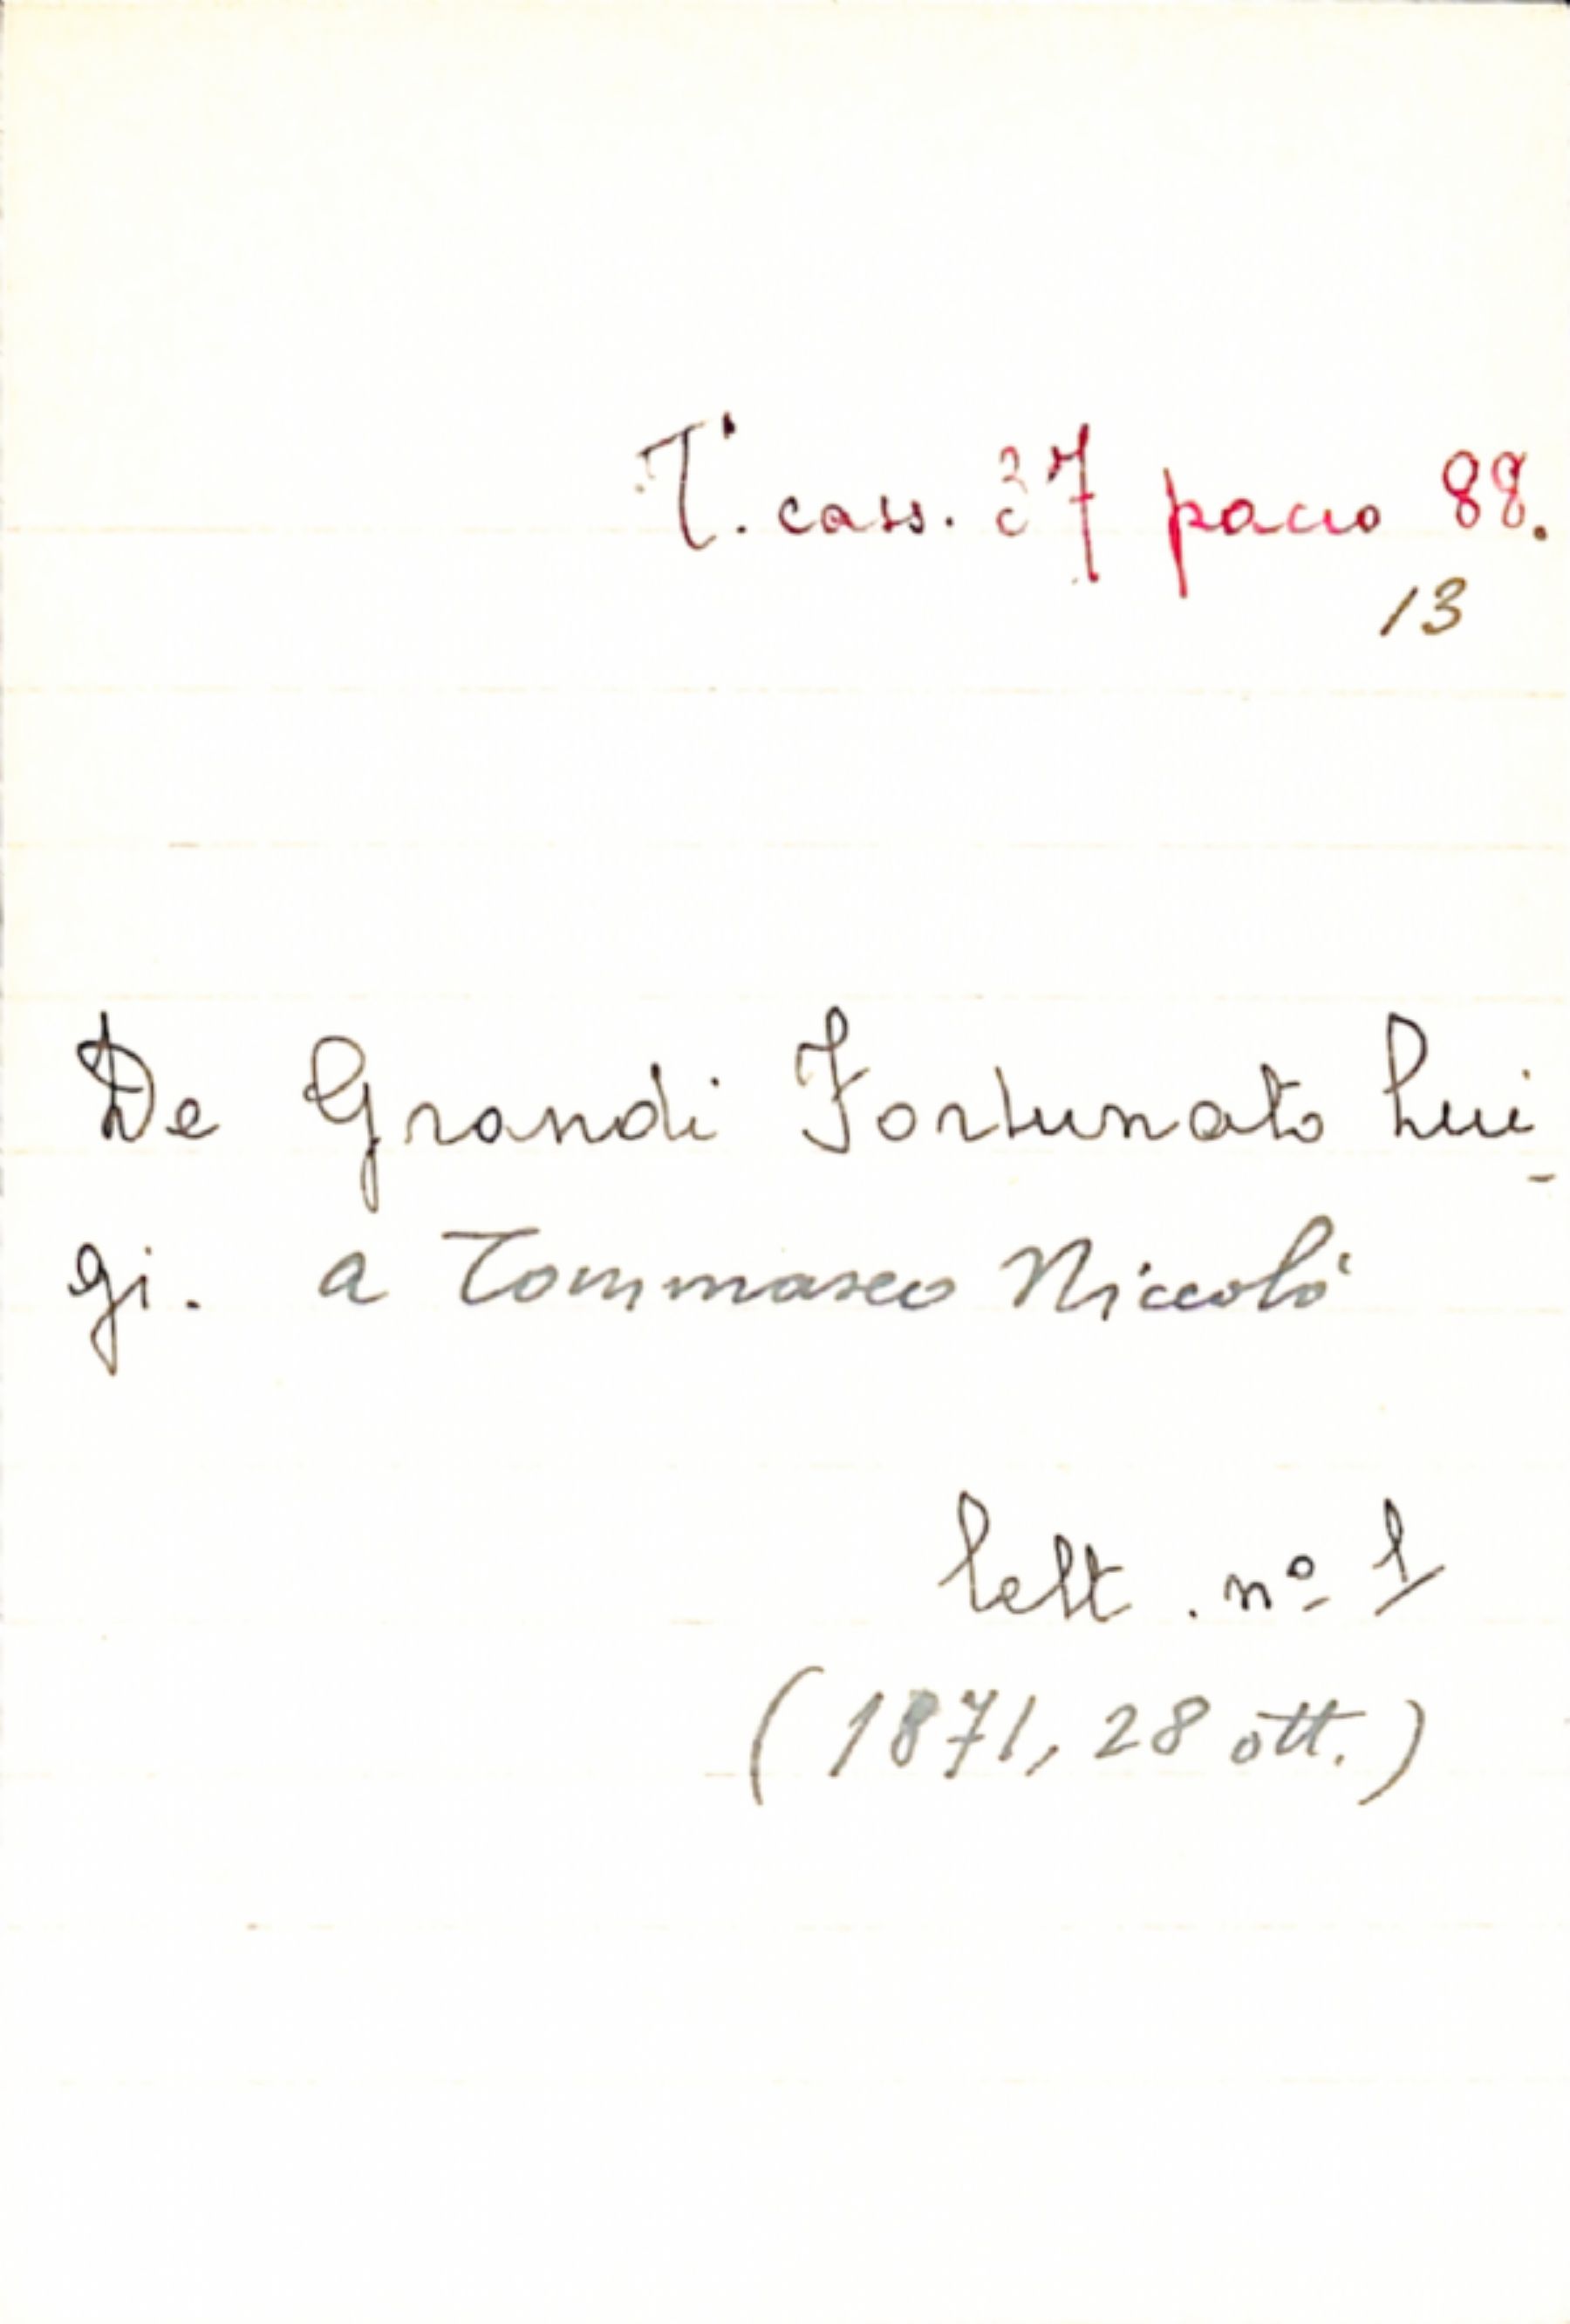 T. cass. 37 pacco 88.
13
De Grandi Fortunato Lui-
gi. a Tommaseo Niccolò
lett. nº 1
(1871, 28 ott.)